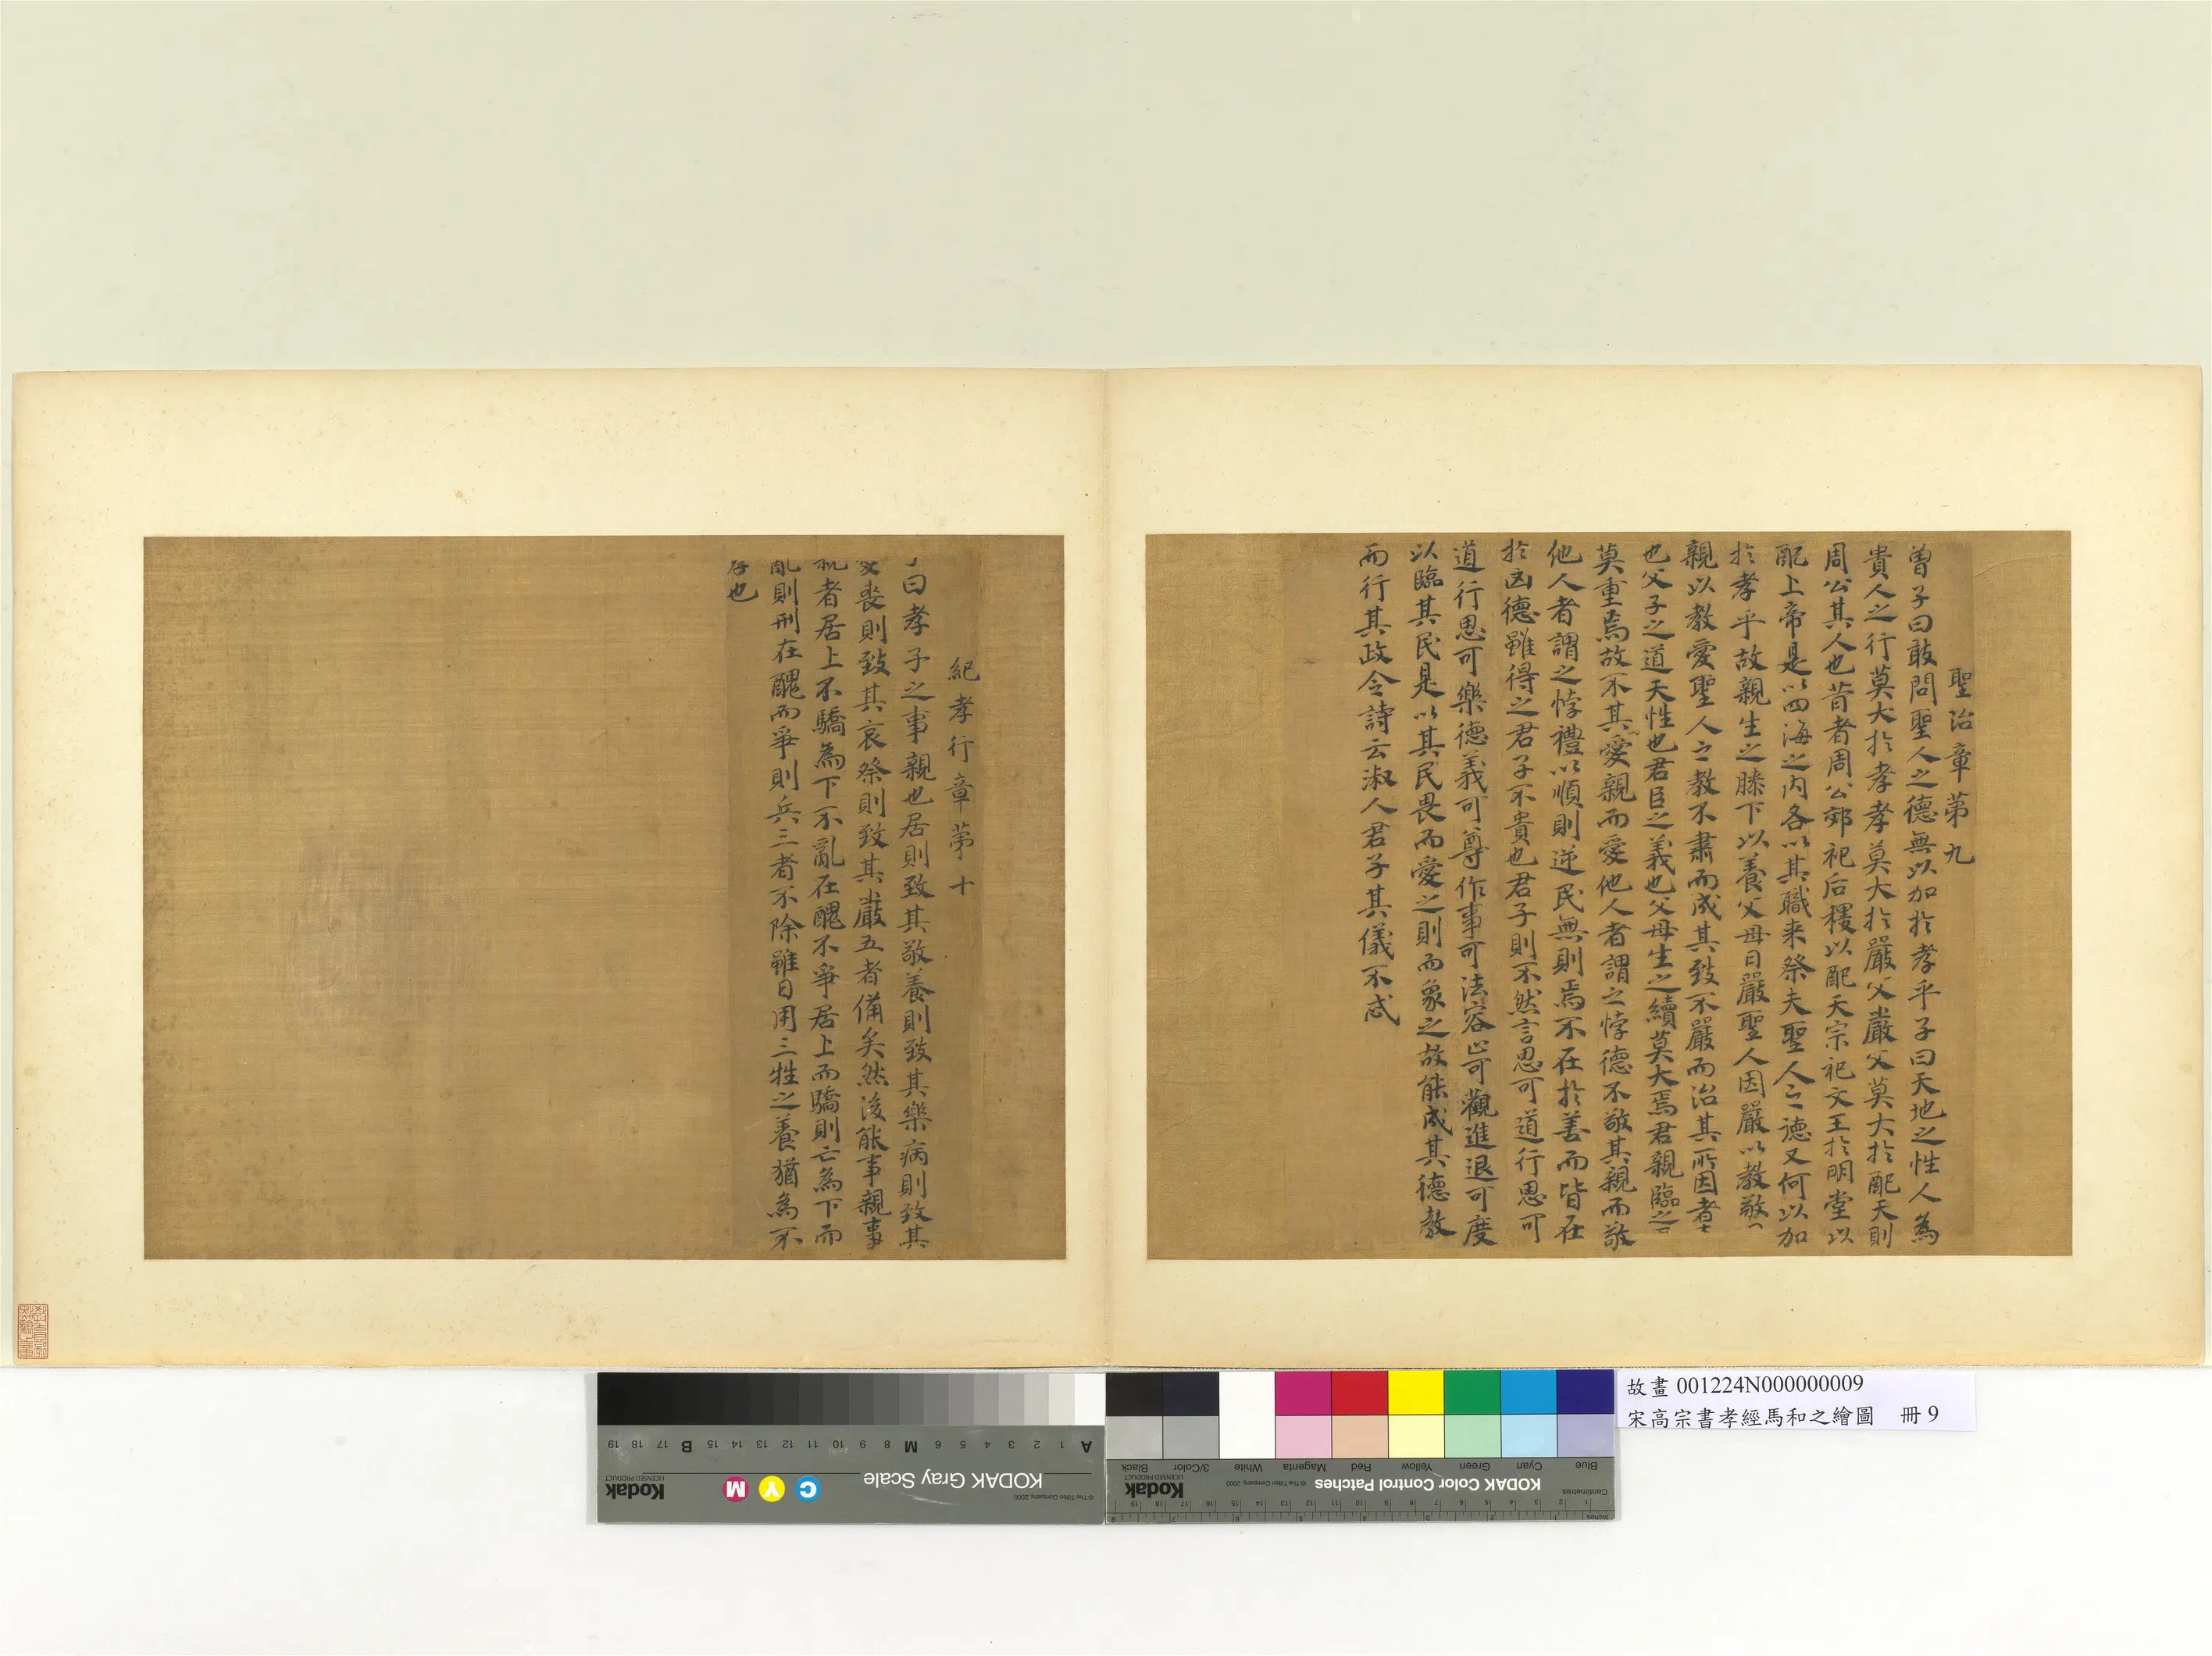 聖治章第九
曾子曰敢問聖人之德無以加於孝乎子曰天地之性人為
貴人之行莫大於孝孝莫大於嚴父嚴父莫大於配天則
周公其人也昔者周公郊祀后稷以配天宗祀文王於明堂以
配上帝是以四海之内各以其職来祭夫聖人之德又何以加
於孝乎故親生之膝下以養父母日嚴聖人因嚴以教敬
親以教愛聖人之教不肅而成其政不嚴而治其所因者
也父子之道天性也君臣之義也父母生之續莫大焉君親臨之
莫重焉故不其愛親而愛他人者謂之悖德不敬其親而敬
他人者謂之悖禮以順則逆民無則焉不在於善而皆在
於凶德雖得之君子不貴也君子則不然言思可道行思可
道行思可樂德義可尊作事可法容止可觀進退可度
以臨其民是以其民畏而愛之則而象之故能成其德教
而行其政令詩云淑人君子其儀不忒
紀孝行章第十
曰孝子之事親也居則致其敬養則致其樂病則致其
喪則致其哀祭則致其嚴五者備矣然後能事親事
者居上不驕為下不亂在醜不爭居上而驕則亡為下而
亂則刑在醜而爭則兵三者不除雖日用三牲之養猶為不
孝也
故畫 001224N000000009
宋高宗書孝經馬和之繪圖 冊 9
A 1 2 3 4 5 6 M 8 9 10 11 12 13 14 15 B 17 18 19
KODAK Gray Scale
C Y M
Kodak
LICENSED PRODUCT
© The Tiffen Company, 2000
Blue Cyan Green Yellow Red Magenta White 3/Color Black
Centimetres
KODAK Color Control Patches
© The Tiffen Company, 2000
Kodak
LICENSED PRODUCT
Inches